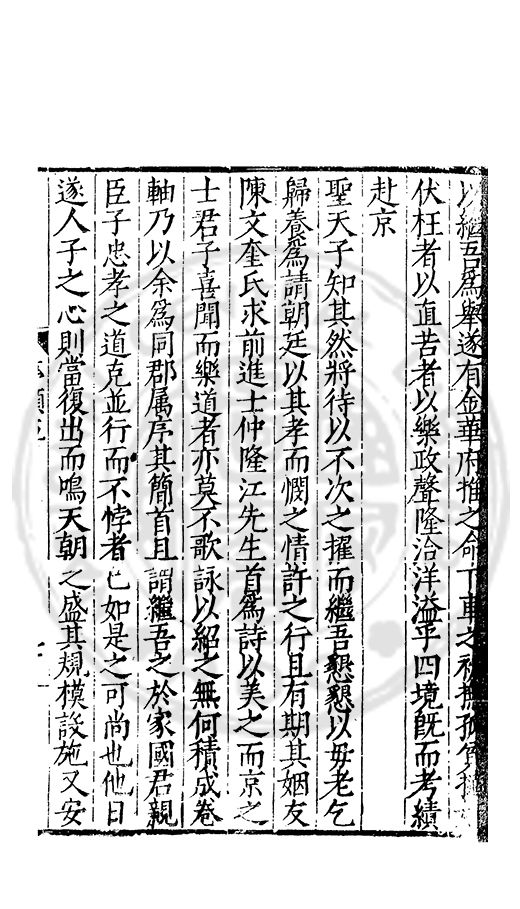 以繼吾爲舉遂有金華府推之命下車之初撫孤
伏枉者以直苦者以樂政聲隆洽洋溢乎四境旣而考績
赴京
聖天子知其然將待以不次之擢而繼吾懇懇以毋老乞
歸養爲請朝廷以其孝而憫之情許之行且有期其姻友
陳文奎氏求前進士仲隆江先生首爲詩以美之而京之
士君子喜聞而樂道者亦莫不歌詠以紹之無何積成卷
軸乃以余爲同郡属序其簡首且謂繼吾之於家國君親
臣子忠孝之道克並行而不悖者已如是之可尚也他日
遂人子之心則當復出而鳴天朝之盛其規模設施又安